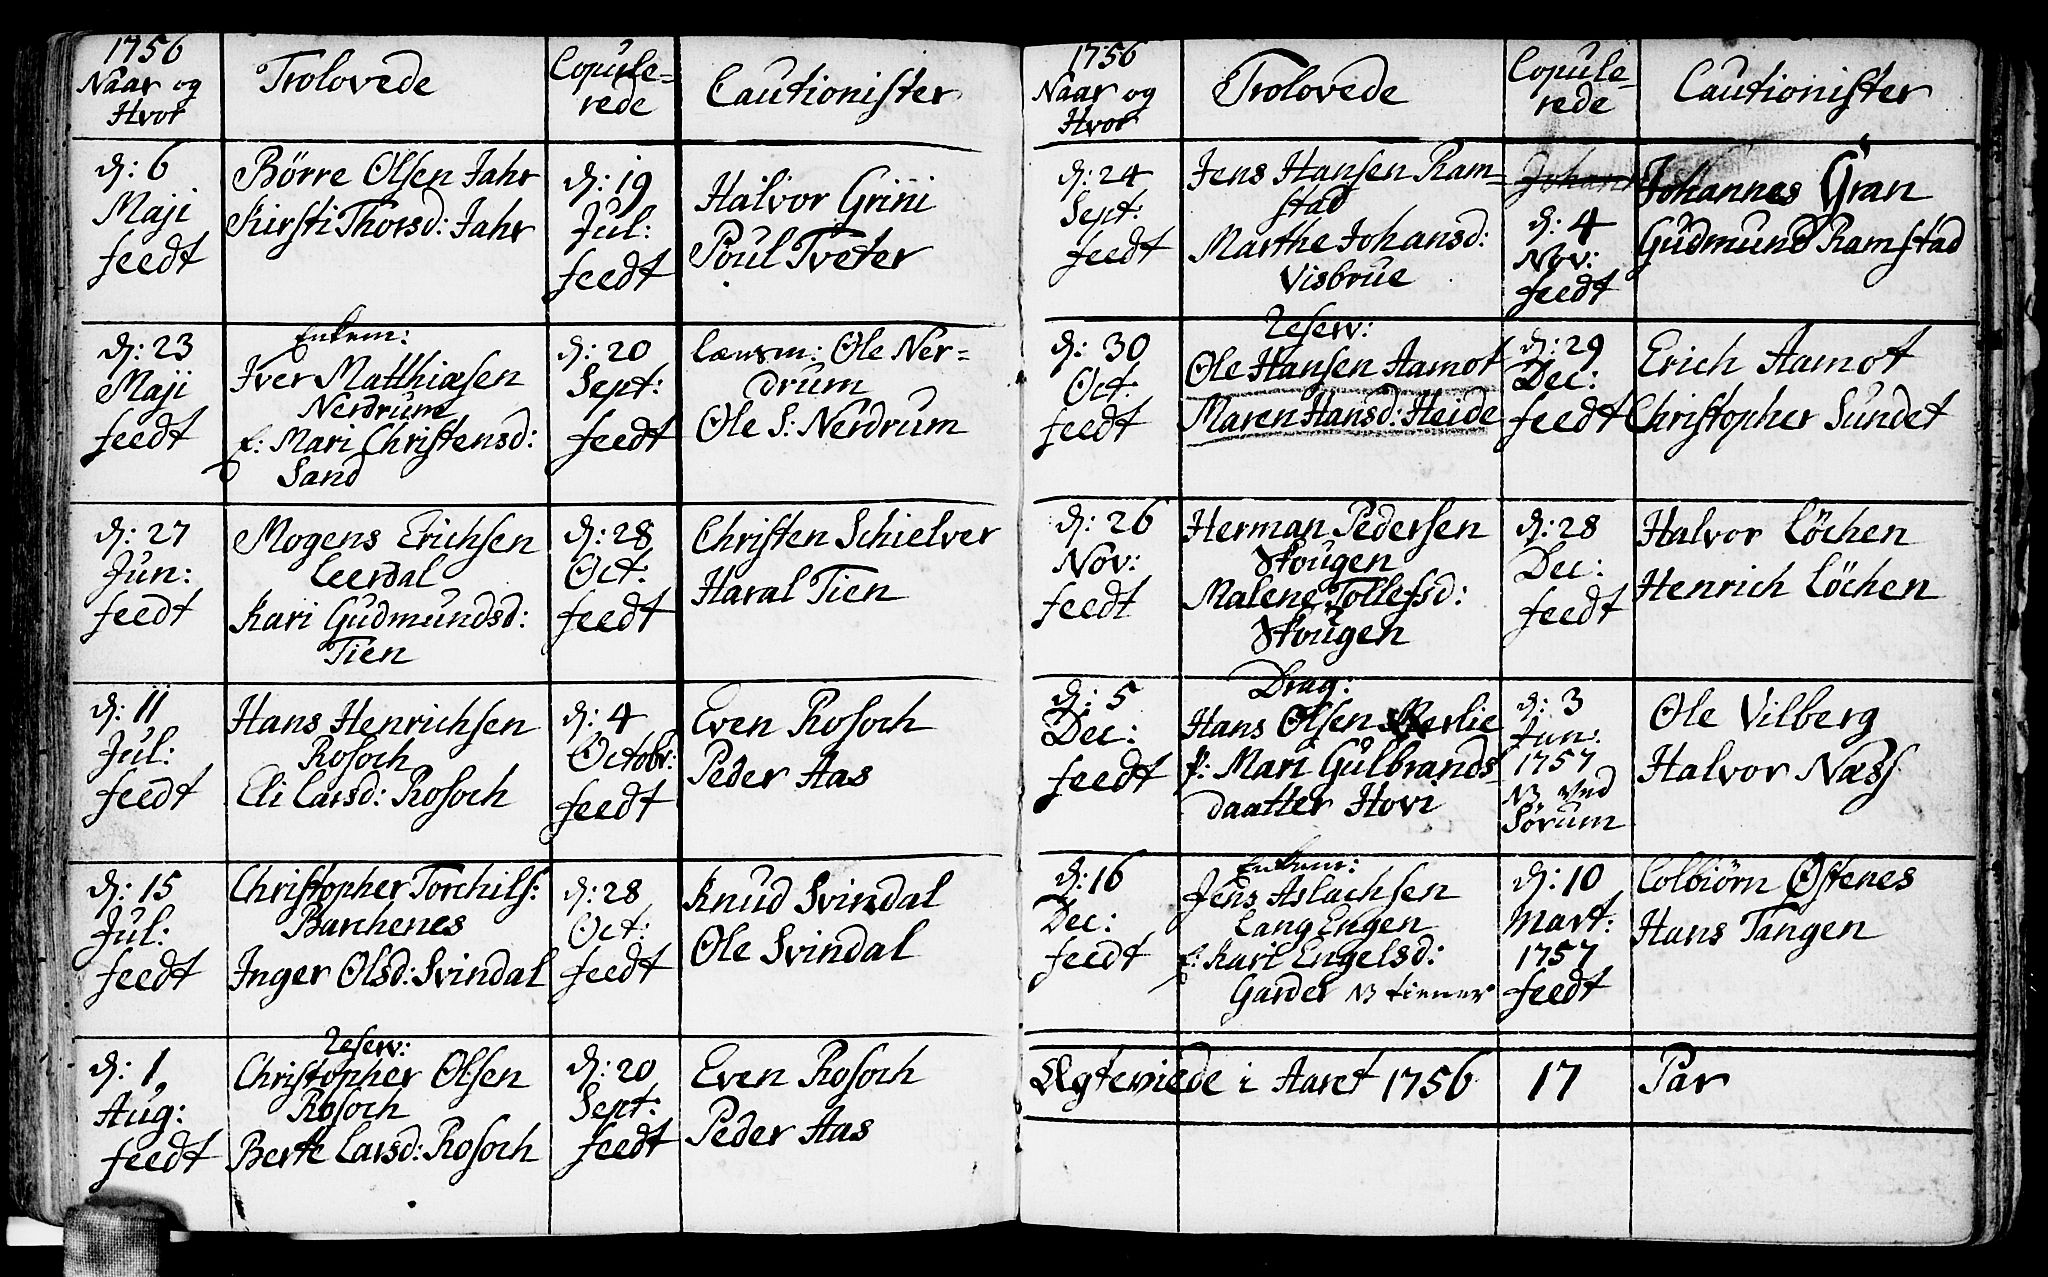 1756
Naar og
Hvor
Trolovede
Copule=
rede
Cautionister
d: 6
Maji
feedt
Börre Olsen Jahr
Kirsti Thorsd: Jahr
d: 19
Jul:
feedt
Halvor Grini
Poul Tveter
d: 23
Maji
feedt
Enkem:
Iver Matthiæsen
Nerdrum
E: Mari Christensd:
Sand
d: 20
Sept:
feedt
Lænsm: Ole Ner=
drum
Ole S: Nerdrum
d: 27
Jun:
feedt
Mogens Erichsen
Leerdal
Kari Gudmundsd:
Tien
d: 28
Oct:
feedt
Christen Schielver
Haral Tien
d: 11
Jul:
feedt
Hans Henrichsen
Rosoch
Eli Larsd: Rosoch
d: 4
Octobr:
feedt
Even Rosoch
Peder Aas
d: 15
Jul:
feedt
Christopher Torchils:
Barchenes
Inger Olsd: Svindal
d: 28
Oct:
feedt
Knud Svindal
Ole Svindal
d: 1
Aug:
feedt
Reserv:
Christopher Olsen
Rosoch
Berte Larsd: Rosoch
d: 20
Sept:
feedt
Even Rosoch
Peder Aas
1756
Naar og
Hvor
Trolovede
Copule-
rede
Cautionister
d: 24
Sept:
feedt
Jens Hansen Ram=
stad
Marthe Johansd:
Visbrue
Johan
d: 4
Nov:
feedt
Johannes Gran
Gudmund Ramstad
d: 30
Oct:
feedt
Reserv:
Ole Hansen Aamot
Maren Hansd: Heide
d: 29
Dec:
feedt
Erich Aamot
Christopher Sundet
d: 26
Nov:
feedt
Herman Pedersen
Skougen
Malene Tollefsd:
Skougen
d: 28
Dec:
feedt
Halvor Löchen
Henrich Löchen
d: 5
Dec:
feedt
Drag:
Hans Olsen
P: Mari Gulbrands
daatter Hovi
d: 3
Jun:
1757
NB ved
Sörum
Ole Vilberg
Halvor Næss
d: 16
Dec:
feedt
Enkem:
Jens Aslachsen
Lang Engen
E: Kari Engelsd:
Garder NB tiener
d: 10
Mart:
1757
feedt
Colbiörn Østenes
Hans Tangen
Ægteviede i Aaret 1756 17 Par